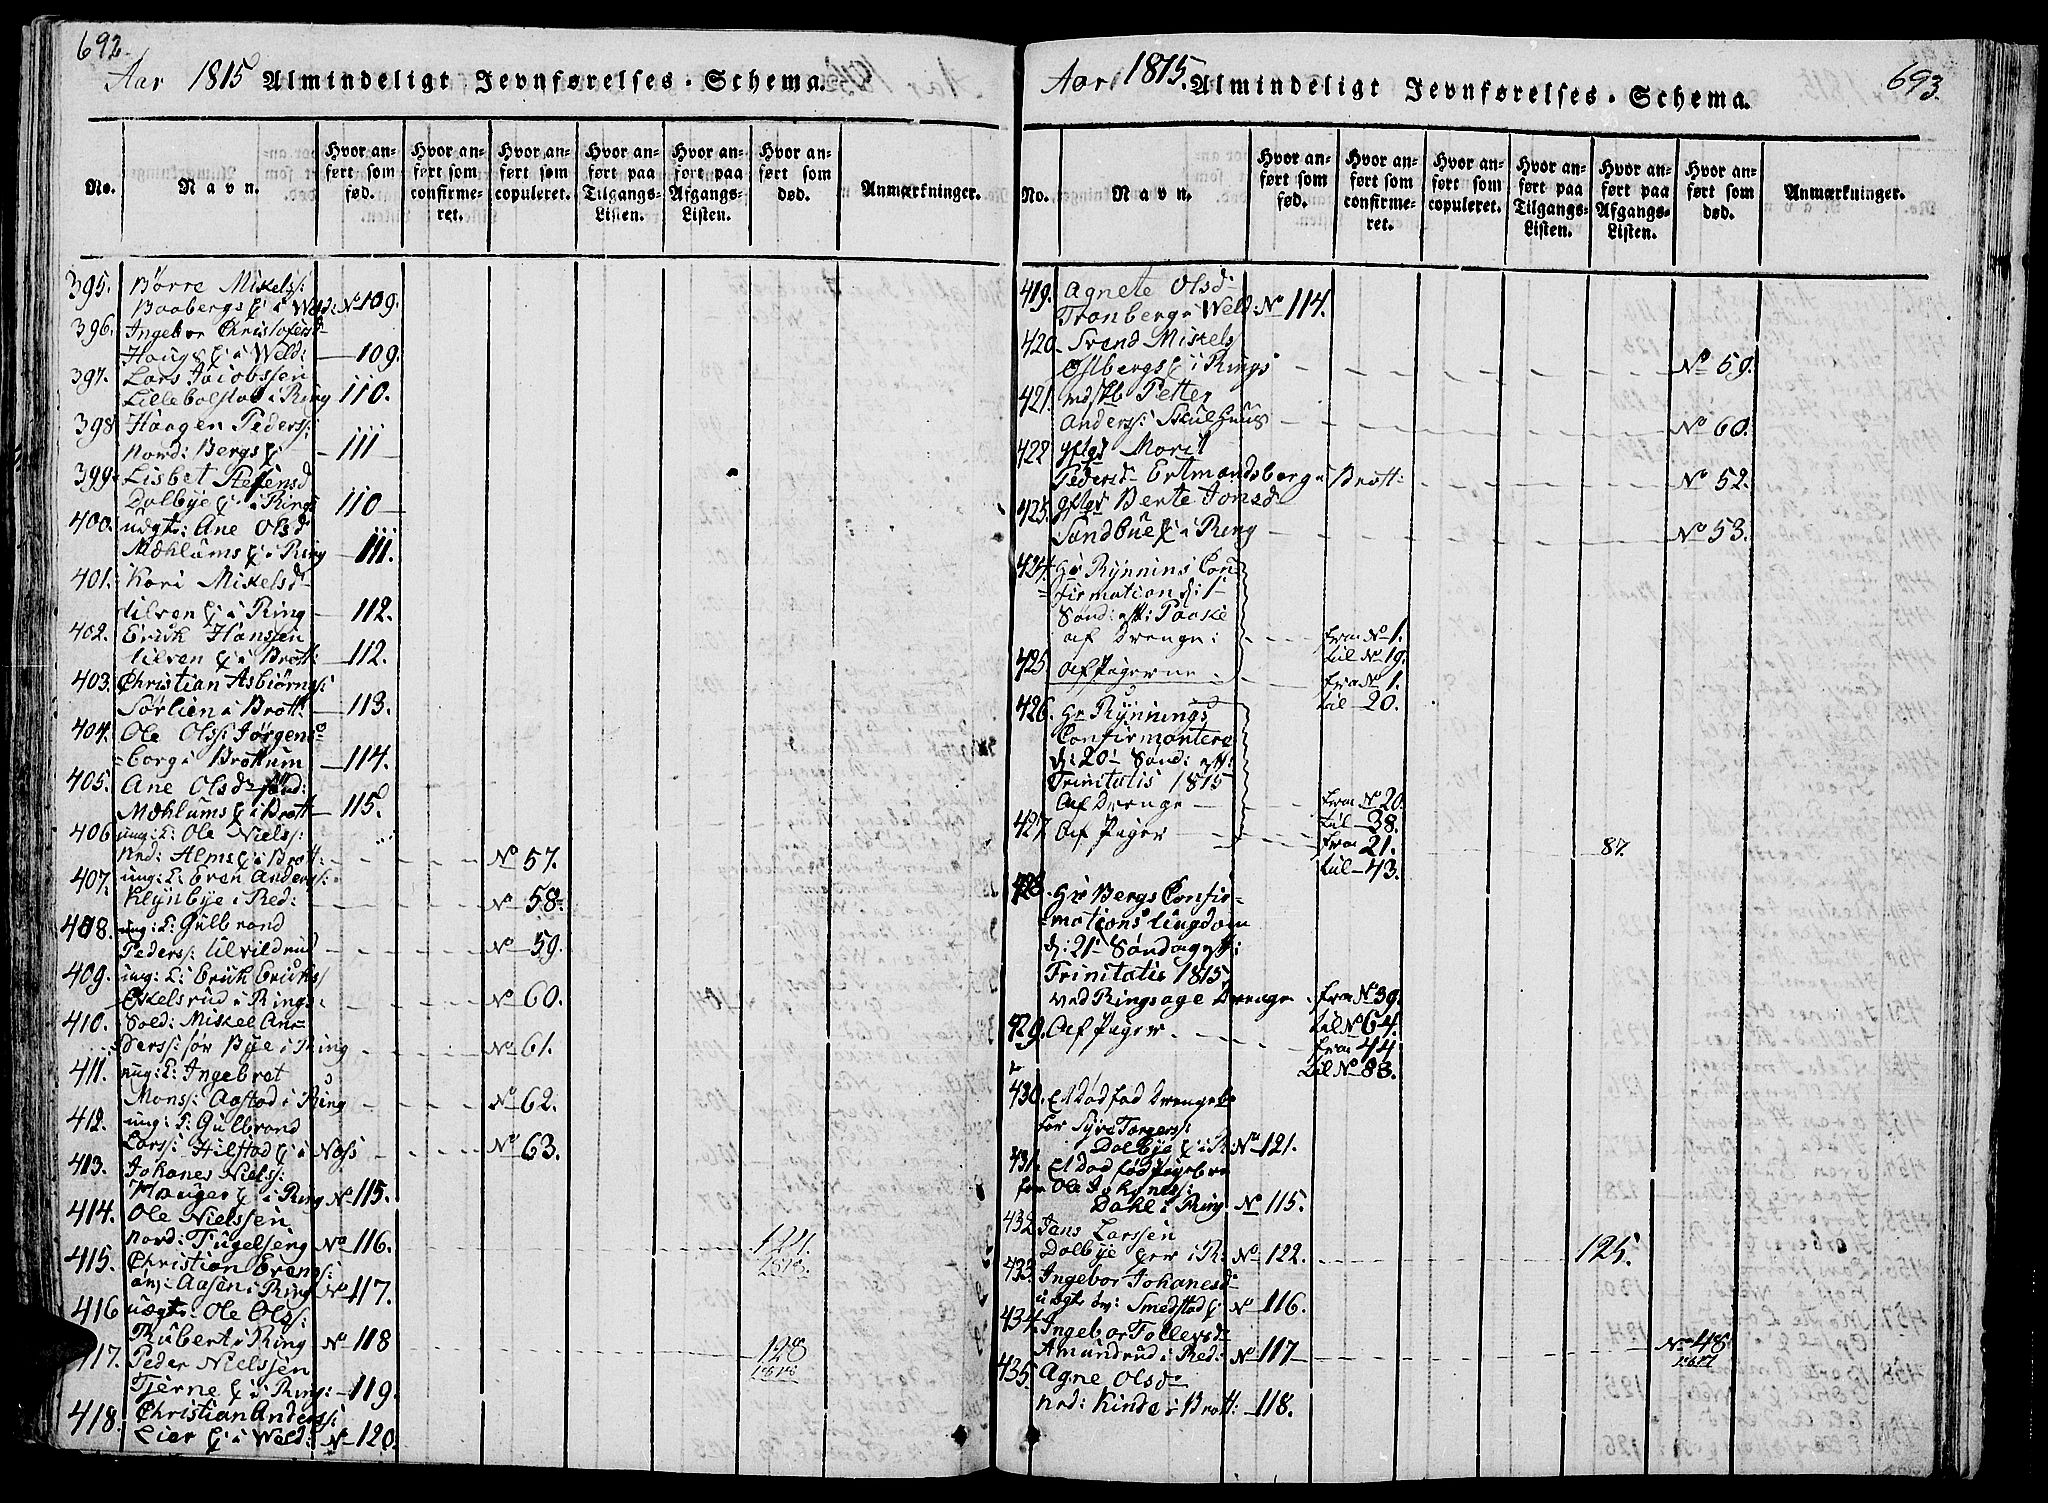 692.
Aar 1815 Almindeligt Jevnførelses-Schema.
No.
Navn.
Hvor anført som fød.
Hvor anført som confirmeret.
Hvor anført som copuleret.
Hvor anført paa Tilgangs-Listen.
Hvor anført paa Afgangs-Listen.
Hvor anført som død.
Anmærkninger.
395. Børre Mikels:
Baabergs i Weld: No 109.
396. Ingebor Christofersd
Haugs i Weld: — 109.
397. Lars Jacobssen
Lillebolstad i Ring 110.
398 Haagen Peders:
Nord: Bergs — 111
399. Lisbet Stefensd
Dolbye i Rings 110
400. uægt: Ane Olsd
Mæhlums i Ring — 111.
401. Kari Mikelsd
Ulven i Ring — 112.
402. Erick Hanssen
Ulven i Brott: 112.
403. Christian Asbiørns:
Sørlien i Brott: — 113.
404. Ole Ols: Jørgens
=borg i Brøttum — 114.
405. Ane Olsd
Mæhlums i Brott — 115.
406 ung: K: Ole Niels:
Nrd: Alms i Brott: No 57.
407. ung: K: Even Anders:
Klynbye i Red: No 58
408. ung: K: Gulbrand
Peders: Ulvildrud No 59.
409. ung: K: Erick Ericks
Eskelsrud i Rings: No 60.
410. Sold: Mikel An=
ders: sør Bye i Ring No 61.
411. ung: K: Ingebret
Mons: Aastad i Ring No 62.
412. ung: K: Gulbrand
Lars: Hilstad i Næss No 63.
413. Johanes Niels:
Hauger i Ring No 115.
414. Ole Nielssen
Nord: Fugelseng No 116. 121.
415. Christian Evens:
øv: Aasen i Ring No 117.
416 uægte Ole Ols:
Rubert i Ring No 118 128
417. Peder Nielssen
Tjerne i Ring: — 119.
418. Christian Anders:
Lier i Weld: No 120.
693.
Aar 1815. Almindeligt Jevnførelses-Schema.
No.
Navn.
Hvor anført som fød.
Hvor anført som confirmeret.
Hvor anført som copuleret.
Hvor anført paa Tilgangs-Listen.
Hvor anført paa Afgangs-Listen.
Hvor anført som død.
Anmærkninger.
419. Agnete Olsd
Tranberg i Weld: No 114.
420. Svend Mikels
Østbergs i Rings No 59.
421. Petter
Anders: Skulhuus No 60.
422 Marit
Pedersd Ertmandsberg i Brott: No 52.
423. Berte Jonsd
Sandbue i Ring No 53.
424. Hr Rynnings Con
firmation d: 1
Sønd: eft: Paaske
af Drenge: fra No 1.
til No 19.
425 Af Piger fra No 1.
til — 20.
426. Hr Rynnings
Confirmantere
d: 20 Sønd: eft:
Trinitatis 1815
Af Drenge — fra No 20.
til — 38.
427. Af Piger — fra 21. 87.
til — 43.
428. Hr Bergs Confir=
=mations Ungdom
d: 21 Søndag eft:
Trinitatis 1815,
ved Ringsager Drenge fra No 39.
til No 64.
429. Af Piger — fra 44
til No 83.
430. Et Dødfød Drengeb
for Syver Torgers:
Dolbye i R: No 121.
431. Et Dødfød Pigebrn
for Ole Johanes:
Dahl i Ring No 115.
432 Jens Larssen
Dolbye i R: No 122. 125.
433 Ingebor Johanesd
uægte øv: Smedstad No 116.
434. Ingebor Tollevsd
Amundrud i Red: No 117 No 48
435. Agne Olsd
Nrd: Kinde i Brott: — 118.